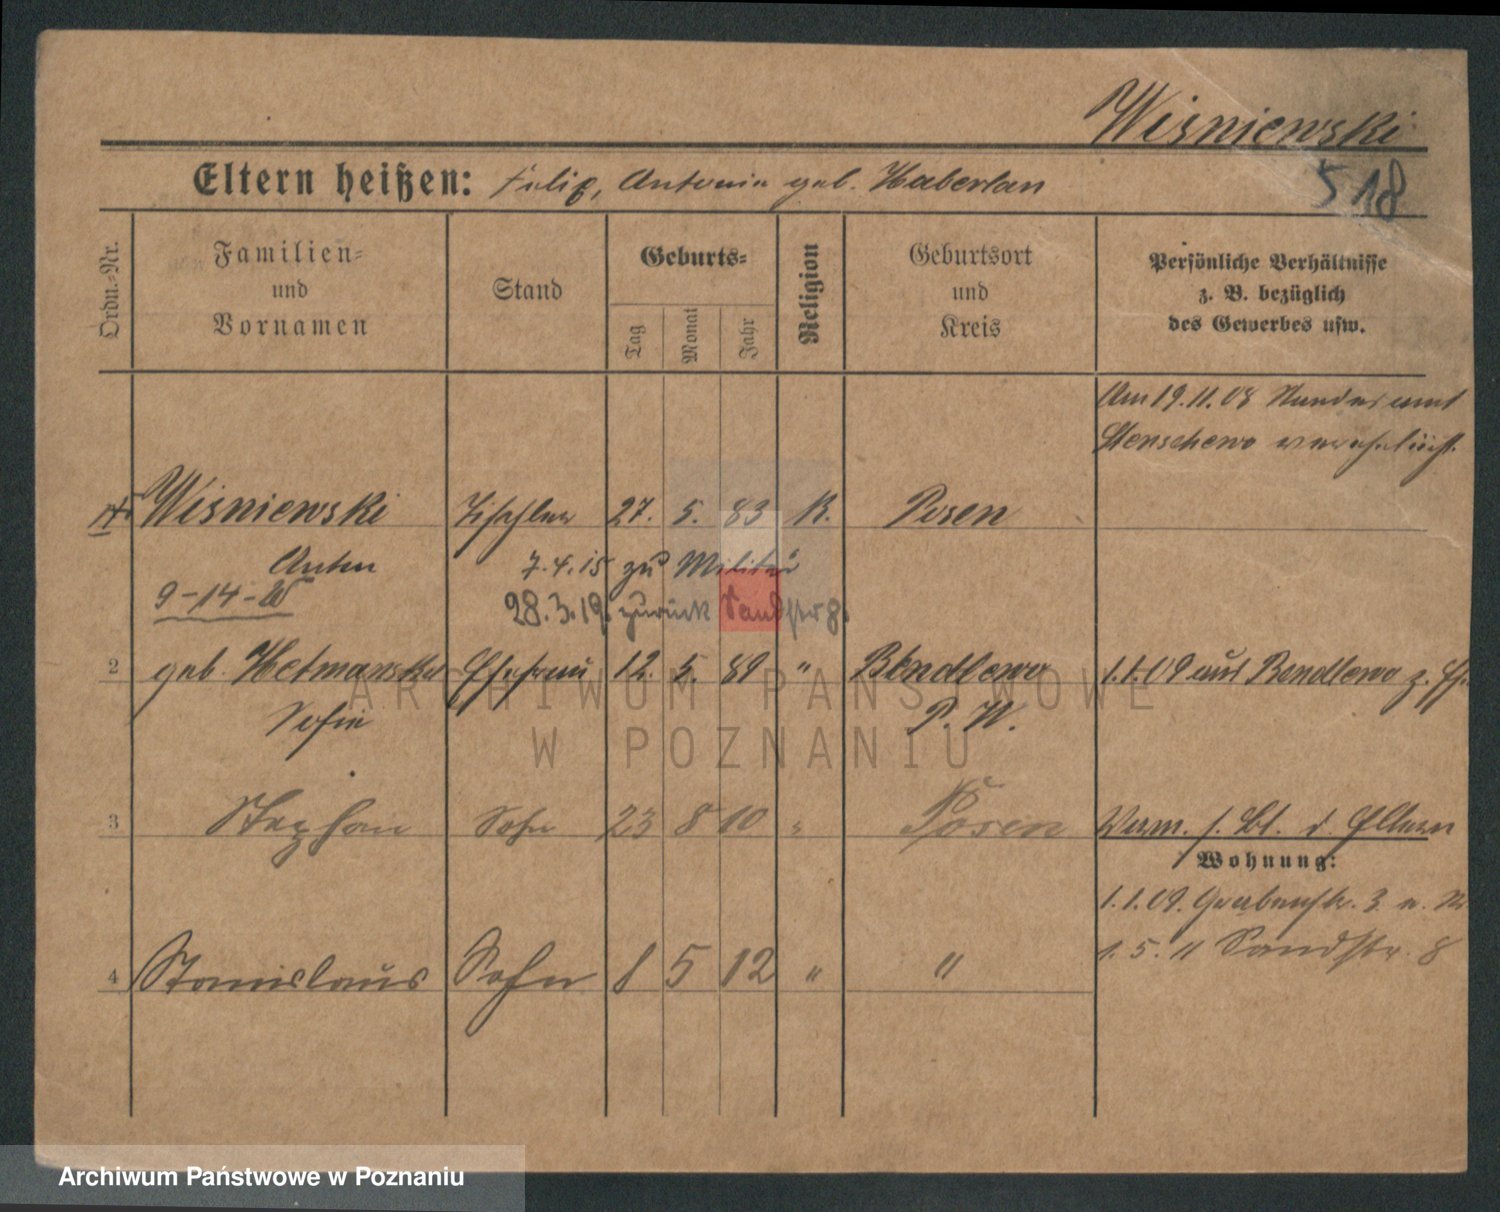 Wiśniewski
Eltern heißen: Felix, Antonie geb. Haberlan
518
Ordn.-Nr.
Familien-
und
Vornamen
Stand
Geburts-
Tag
Monat
Jahr
Religion
Geburtsort
und
Kreis
Persönliche Verhältnisse
z. B. bezüglich
des Gewerbes usw.
Am 19.11.08 Standesamt
Stenschewo verehelicht.
Wiśniewski Tischler 27. 5. 83 K. Posen
Anton 7.4.15 zu Militär
9-14-
28.3.19. zurück Sandstr 8.
2 geb. Hetmanska Ehefrau 12. 5. 89 " Bendlewo 1.1.09 aus Bendlewo z.
Sofie P. W.
3 Stephan Sohn 23 8 10 " Posen Verm. s. Bl. d. Eltern
Wohnung:
1.1.09. Grabenstr. 3
4 Stanislaus Sohn 8 5 12 " " 1.5.11 Sandstr. 8
ARCHIWUM PAŃSTWOWE
W POZNANIU
Archiwum Państwowe w Poznaniu